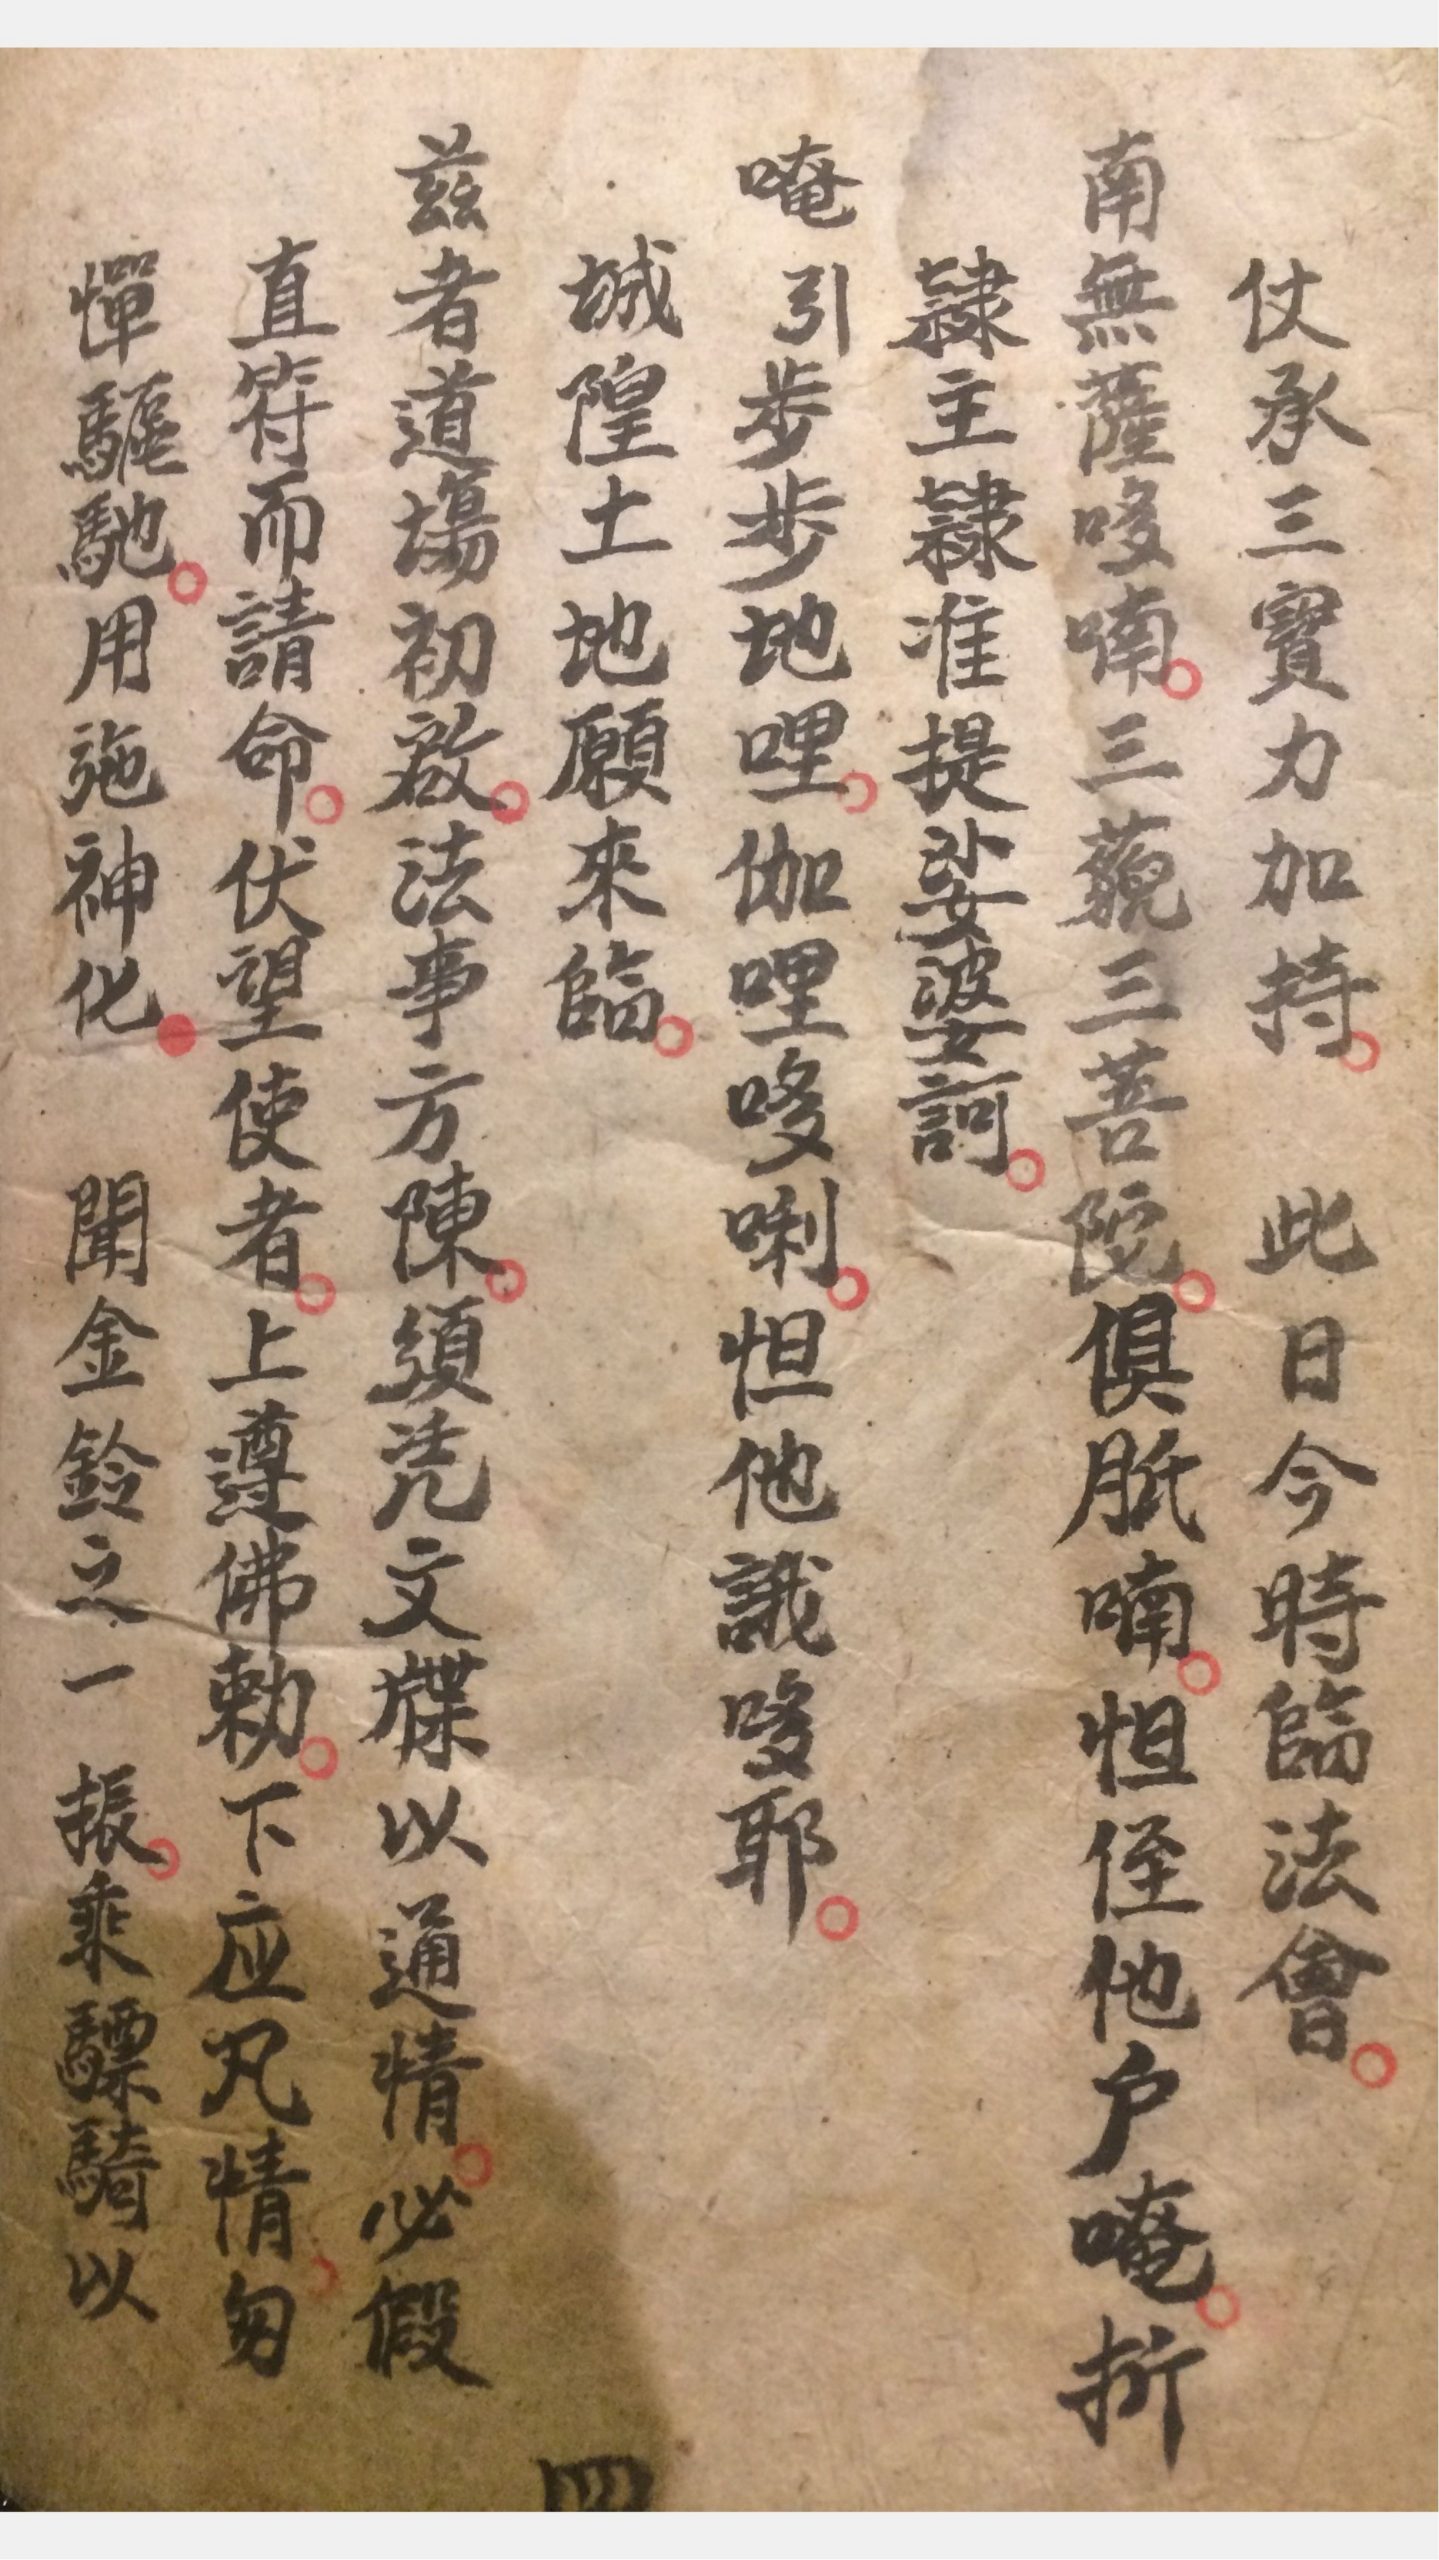 仗承三寶力加持。　此日今時臨法會。
南無薩哆喃。三藐三菩陀。俱胝喃。怛侄他户唵。折
隸主隸准提娑婆訶。
唵引步步地哩。伽哩哆唎。怛他誐哆耶。
城隍土地願來臨。
茲者道場初啟。法事方陳。須凭文牒以通情。必假
直符而請命。伏望使者。上遵佛勅。下应凡情。匆
憚驅馳。用施神化。　聞金鈴之一振。乘驃騎以
四